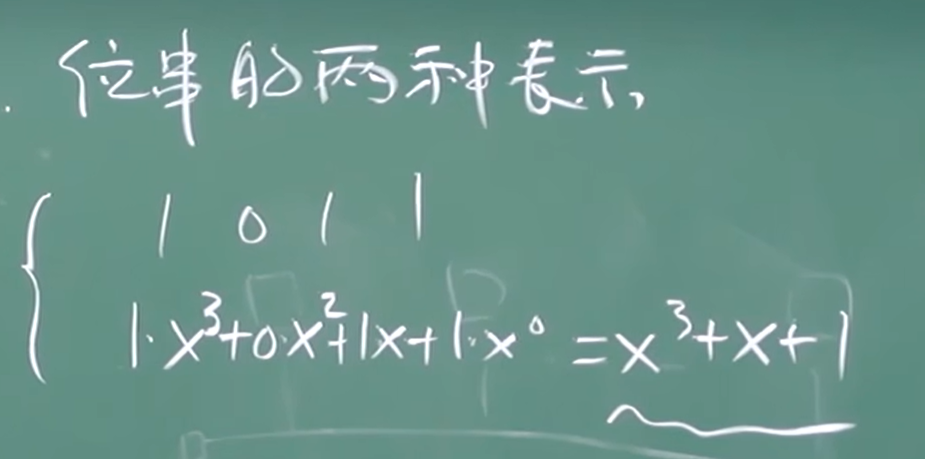 位串的两种表示
1 0 1 1
1·x³+0·x²+1x+1·x⁰ =x³+x+1